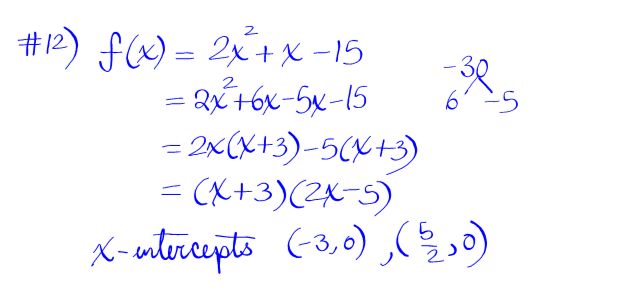 #12) f(x) = 2x² + x - 15
-30
= 2x²+6x-5x-15
6 -5
= 2x(x+3)-5(x+3)
= (x+3)(2x-5)
x-intercepts (-3,0), (5/2,0)